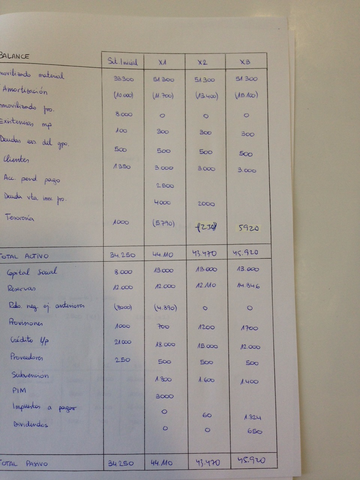 BALANCE Sal. Inicial X1 X2 X3
movilizado material 30300 51.300 51.300 51.300
Amortización (10.000) (11.700) (13.400) (15.100)
movilizado fro. 3.000 0 0 0
Existencias mp 100 300 300 300
500 500 500 500
Clientes 1350 3.000 3.000 3.000
Acc pend pago 2500
4000 2000
Tesorería 1000 (5.790) 5920
TOTAL ACTIVO 34.250 44.110 43.470 45.920
Capital Social 8.000 13.000 13.000 13.000
Reservas 12.000 12.000 12.110 14.346
Rdo neg. ej anteriores (4.890) 0 0
Provisiones 1000 700 1200 1700
Crédito l/p 21000 18.000 15.000 12.000
Proveedores 250 500 500 500
Subvención 1.800 1.600 1.400
PIM 3000
Impuestos a pagar 0 60 1.324
Dividendos 0 0 650
TOTAL PASIVO 34.250 44.110 43.470 45.920